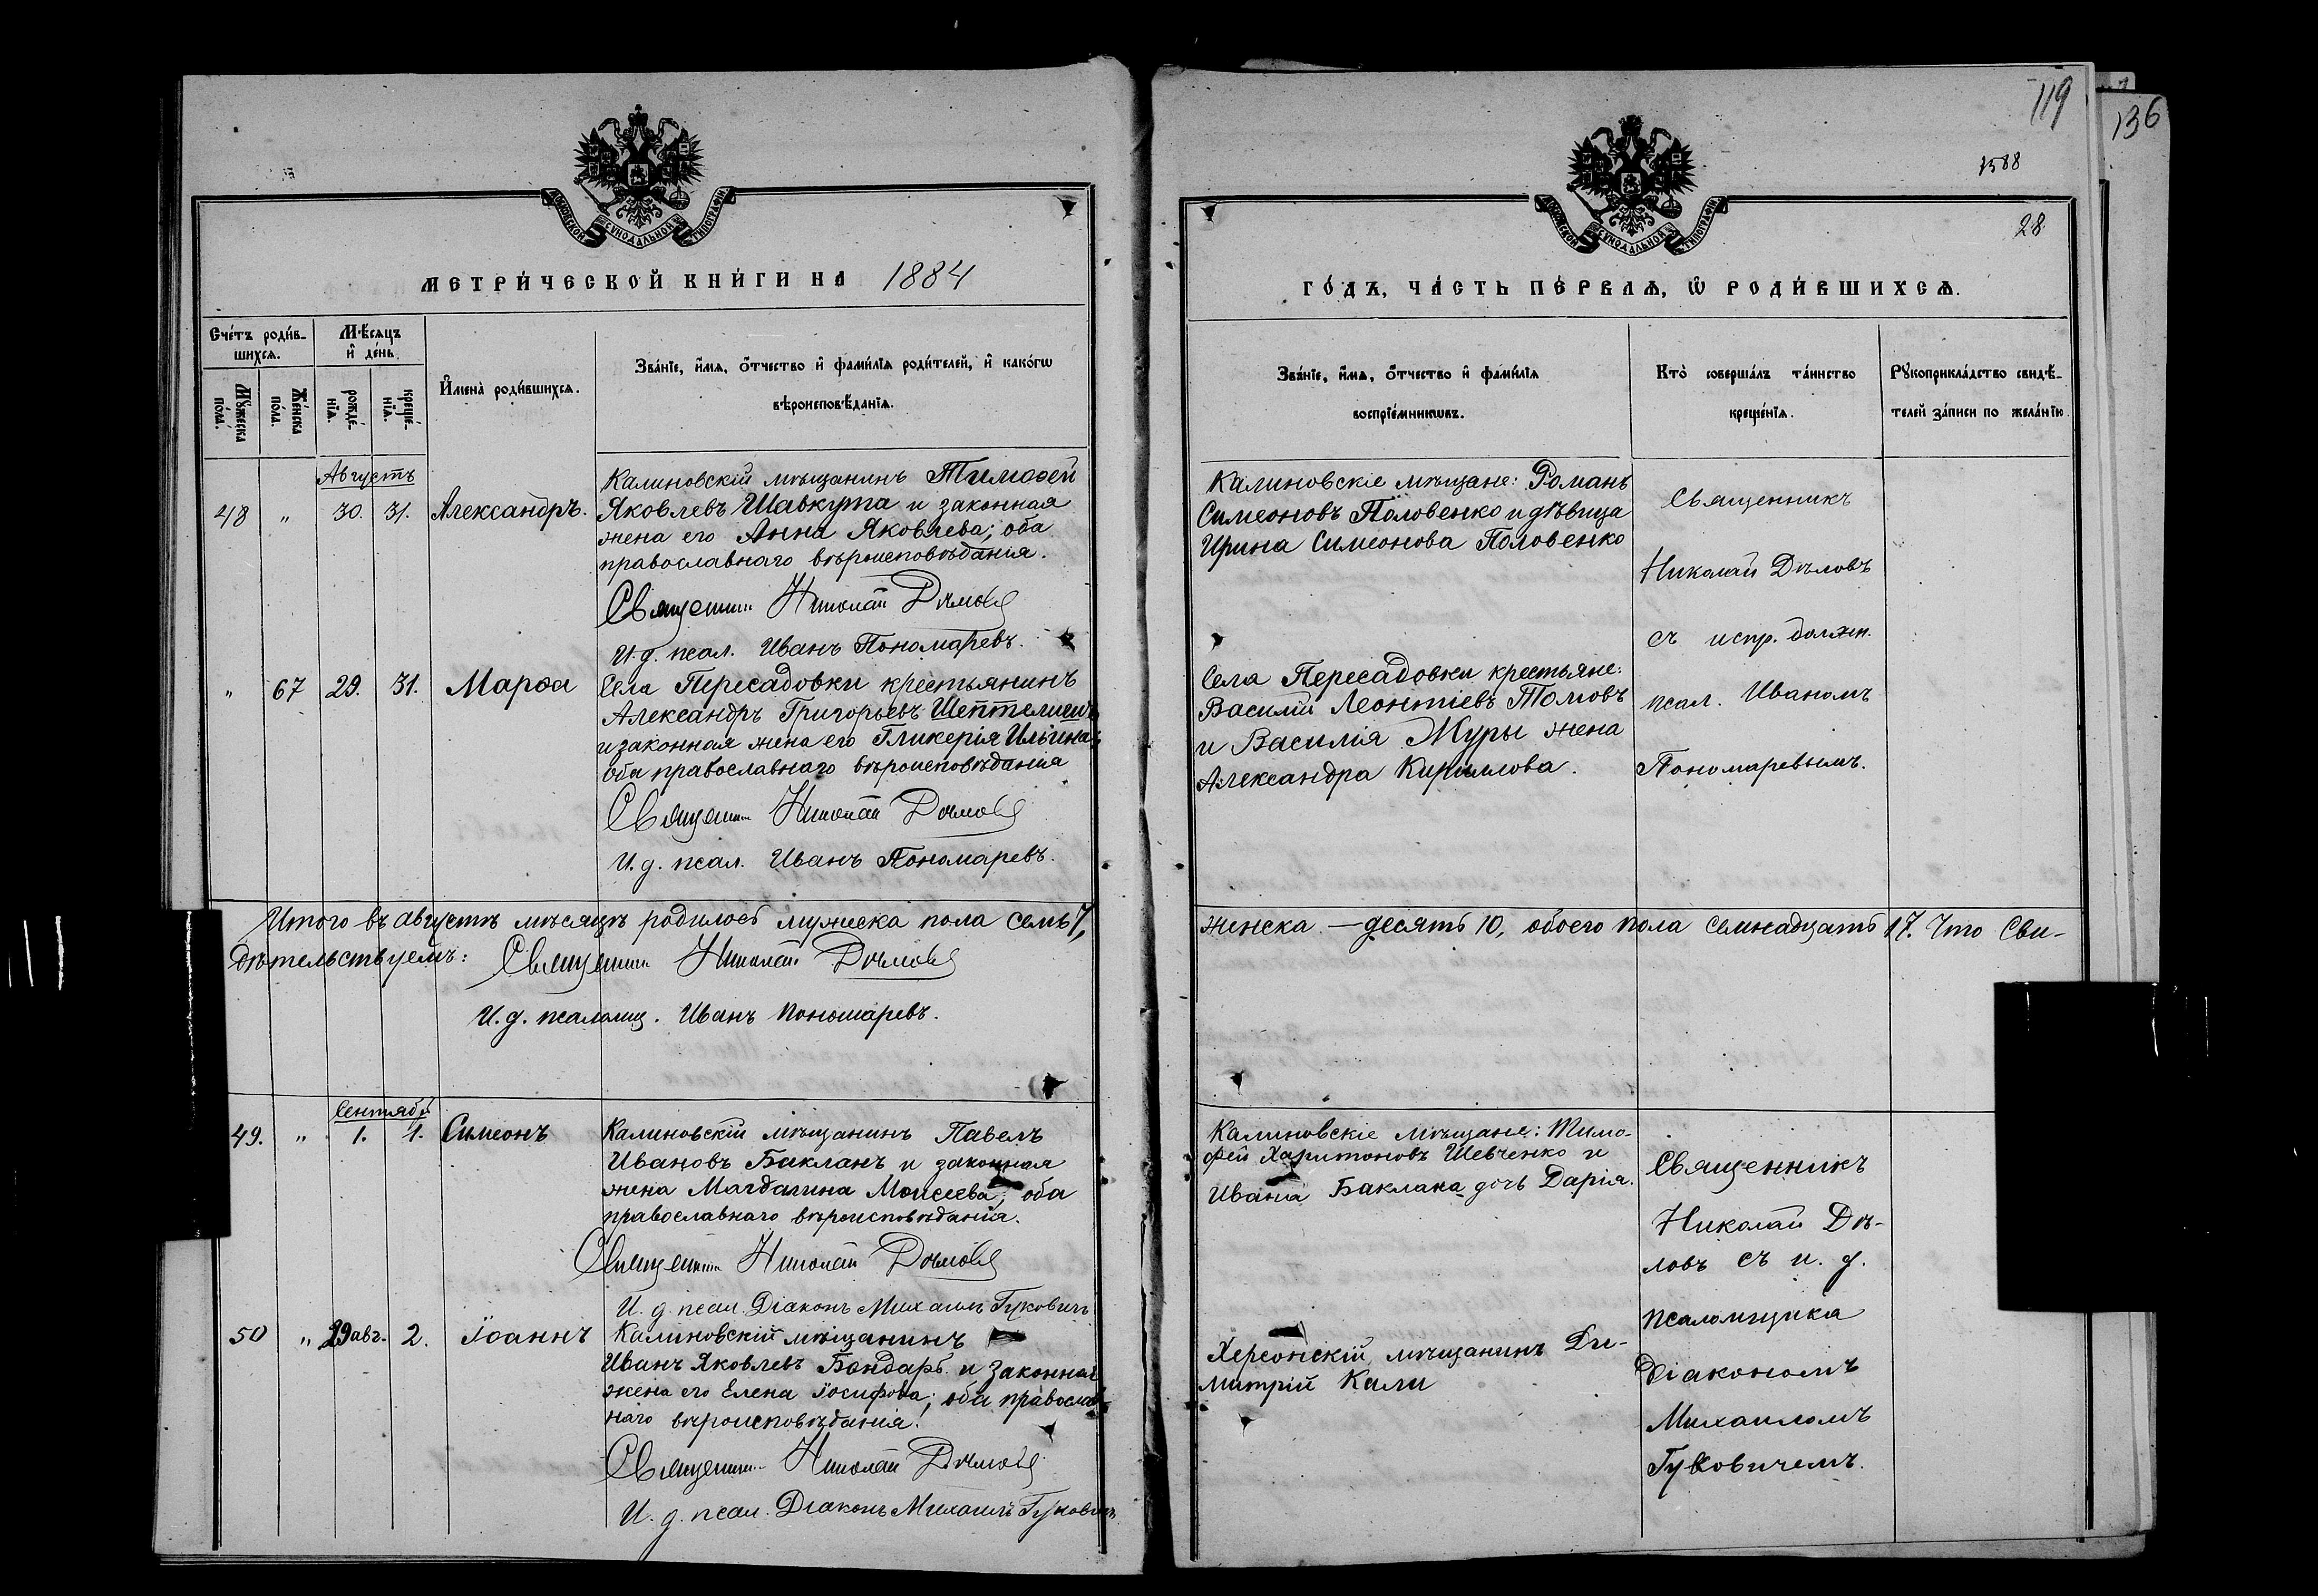 119
136
1588
28
МОСКОВСКОЙ СѴНОДАЛЬНОЙ ТИПОГРАФІИ
МОСКОВСКОЙ СѴНОДАЛЬНОЙ ТИПОГРАФІИ
МЕТРИ́ЧЕСКОЙ КНИ́ГИ НА 1884
Сче́тъ роди́в-
шихсѧ.
Мѣ́сѧцъ
и҆ де́нь
Мꙋ́жеска по́ла.
Же́нска по́ла.
рожде́-нїѧ.
креще́-нїѧ.
И҆мена̀ роди́вшихсѧ.
Зва́нїе, и҆́мѧ, ѻ҆́тчество и҆ фами́лїѧ роди́телей, и҆ како́гѡ
вѣроисповѣ́данїѧ.
Августъ
48 " 30. 31. Александръ.
Калиновскій мѣщанинъ Тимоѳей
Яковлевъ Шавкута и законная
жена его Анна Яковлева; оба
православнаго вѣроисповѣданія.
Священник Николай Дѣловъ
И. д. псал. Иванъ Пономаревъ.
" 67 29. 31. Марѳа
Села Пересадовки крестьянинъ
Александръ Григорьевъ
и законная жена его Гликерія Ильина;
оба православнаго вѣроисповѣданія
Священник Николай Дѣловъ
И. д. псал. Иванъ Пономаревъ.
Итого въ августѣ мѣсяцѣ родилось мужеска пола семь 7,
дѣтельствуемъ: Священник Николай Дѣловъ
И. д. псаломщ. Иванъ Пономаревъ.
Сентябрь
49. " 1. 1. Симеонъ
Калиновскій мѣщанинъ Павелъ
Ивановъ Бакланъ и законная
жена Магдалина Моисеева; оба
православнаго вѣроисповѣданія.
Священник Николай Дѣловъ
И. д. псал. Діаконъ Михаилъ Гуковичъ
50 " 29 авг. 2. Іоаннъ
Калиновскій мѣщанинъ
Иванъ Яковлевъ Бондарь и законная
жена его Елена Іосифова; оба православ-
наго вѣроисповѣданія.
Священник Николай Дѣловъ
И. д. псал. Діаконъ Михаилъ Гуковичъ
ГО́ДЪ, ЧА́СТЬ ПЕ́РВАѦ, Ѽ РОДИ́ВШИХСѦ.
Зва́нїе, и҆́мѧ, ѻ҆́тчество и҆ фами́лїѧ
воспрїе́мникѡвъ.
Кто̀ соверша́лъ та́инство
креще́нїѧ.
Рꙋкоприкла́дство свидѣ́-
телей за́писи по жела́нїю.
Калиновскіе мѣщане: Романъ
Симеоновъ Половенко и дѣвица
Ирина Симеонова Половенко
Села Пересадовки крестьяне:
Василій Леонтіевъ Томовъ
и Василія Муры жена
Александра Кириллова.
Священникъ
Николай Дѣловъ
съ испр. должн.
псал. Иваномъ
Пономаревымъ.
женска — десять 10, обоего пола семнадцать 17. Что сви-
Калиновскіе мѣщане: Тимо-
фей Харитоновъ Шевченко и
Ивана Баклана дочь Дарія.
Херсонскій мѣщанинъ Ди-
митрій Кали
Священникъ
Николай Дѣ-
ловъ съ и. д.
псаломщика
Діакономъ
Михаиломъ
Гуковичемъ.